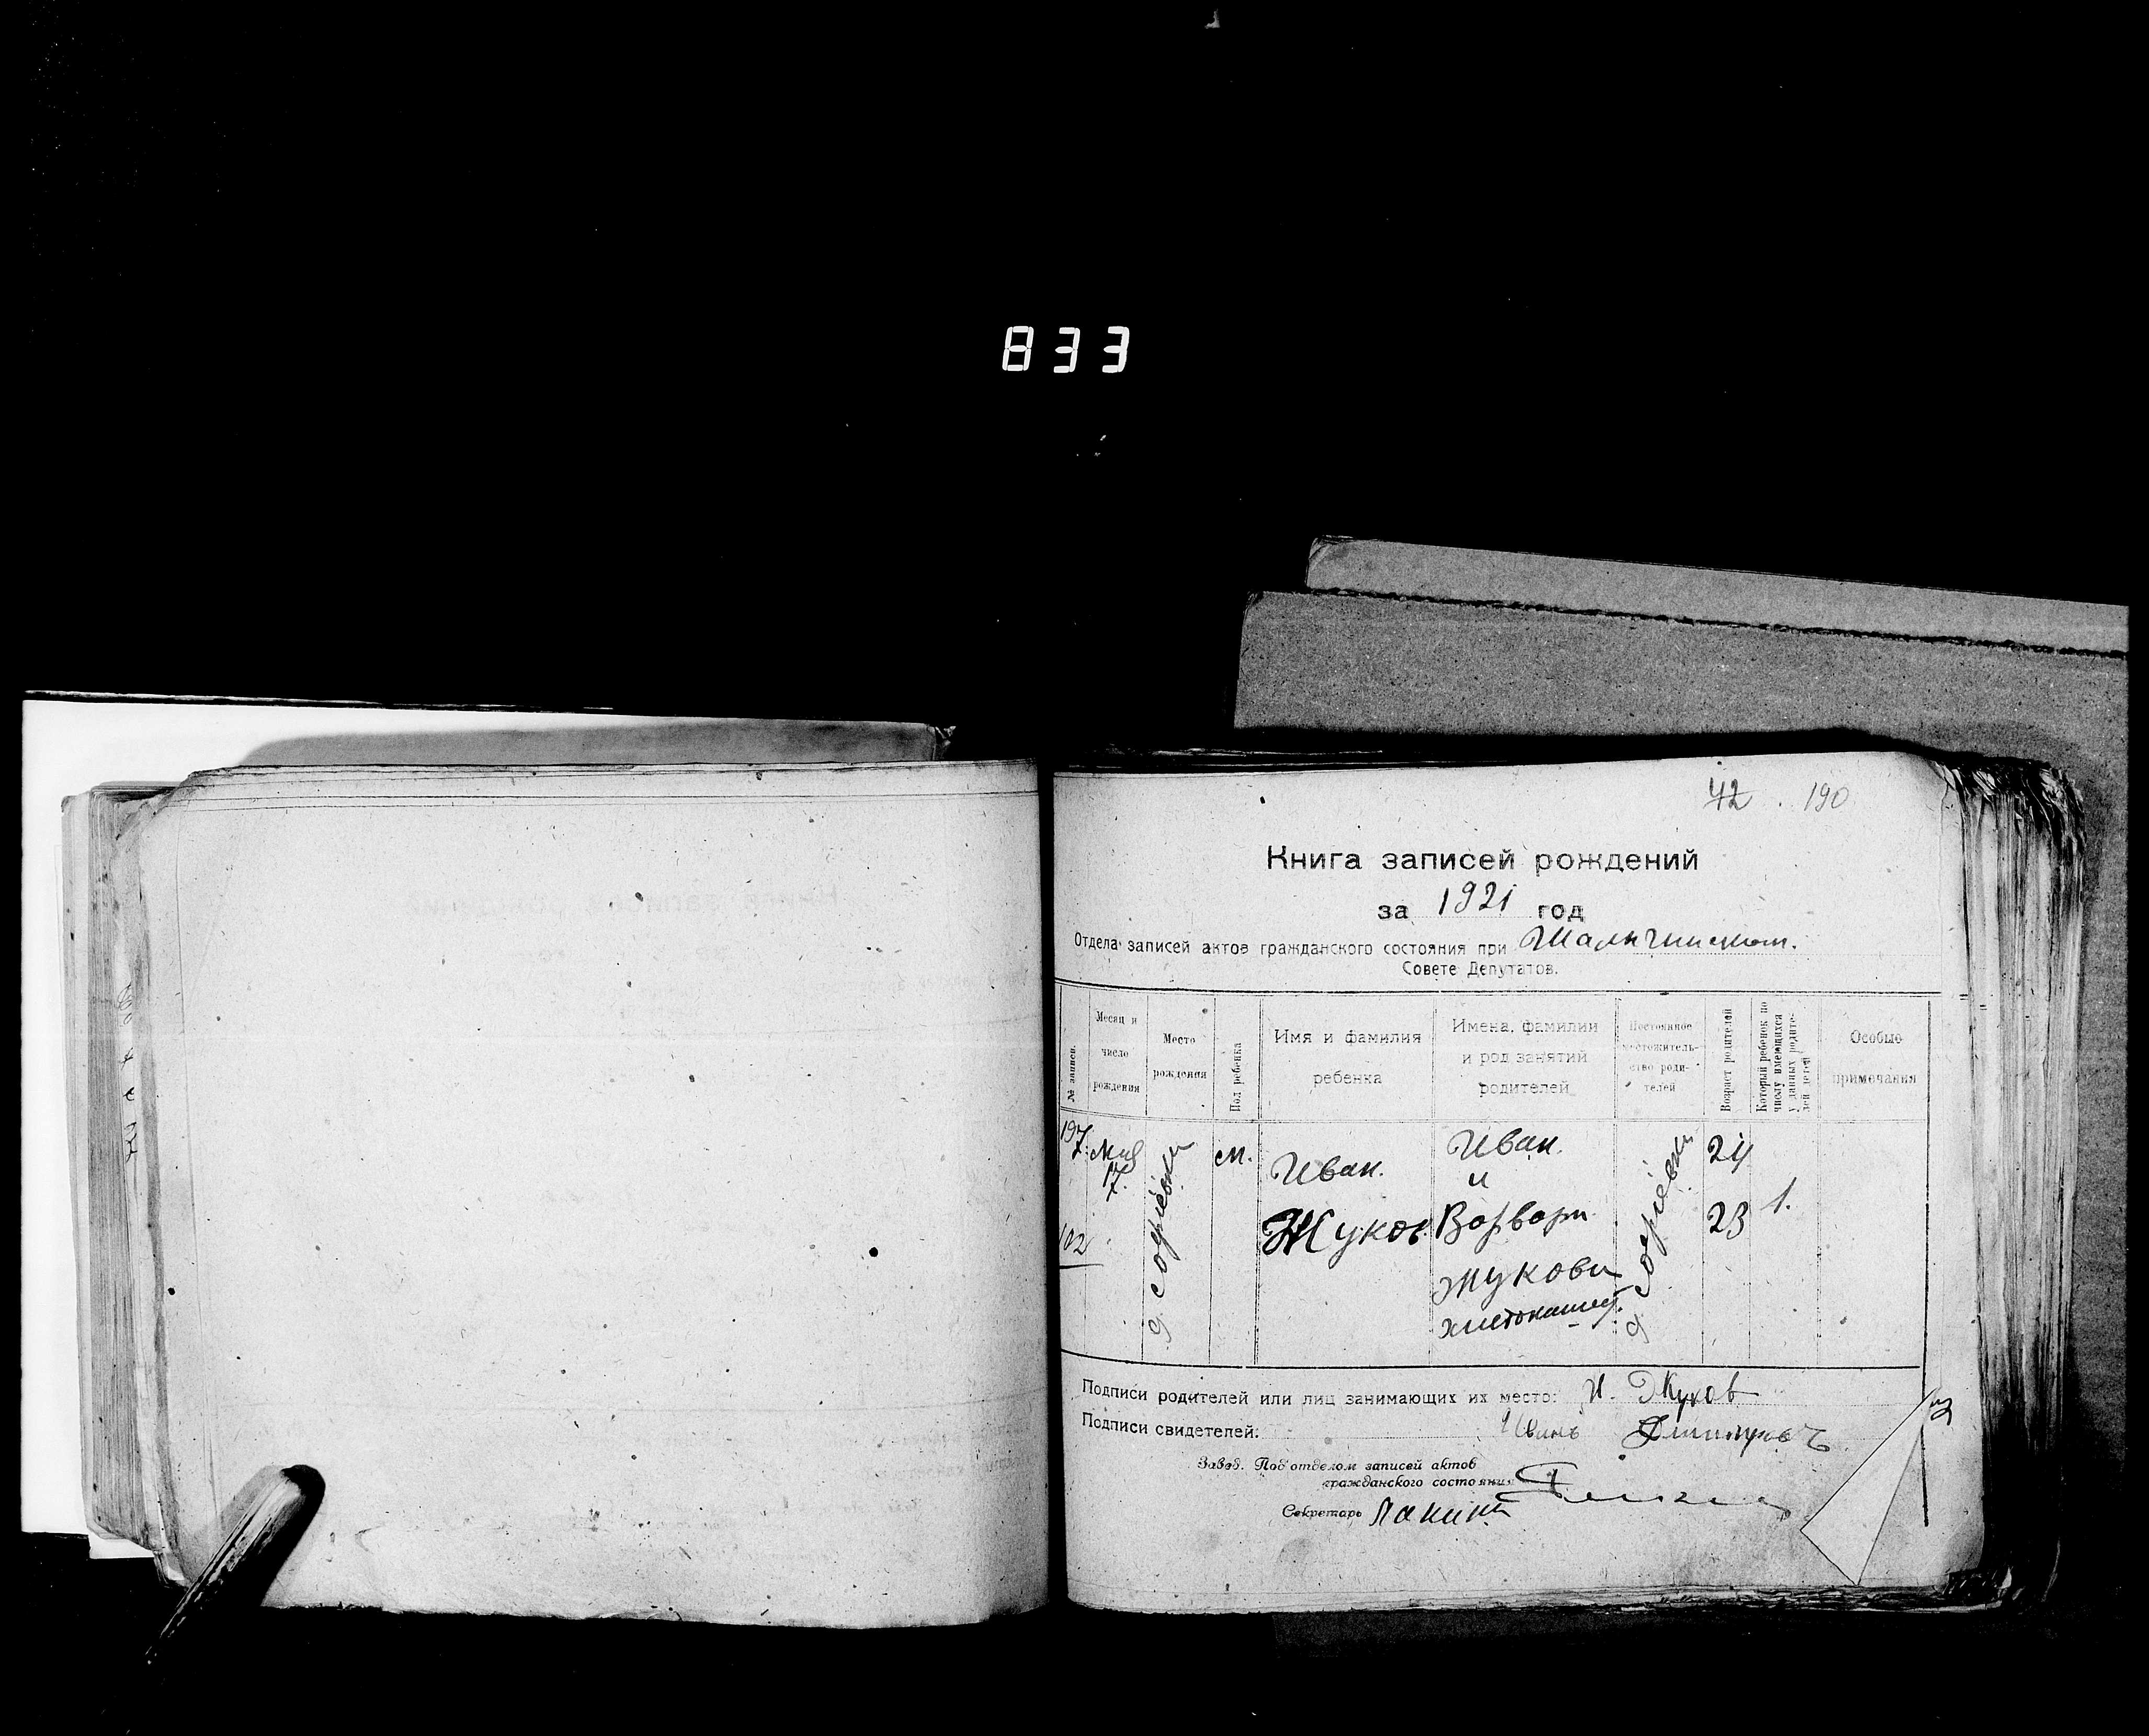 833
42. 190
Книга записей рождений
за 1921 год
Отдела записей актов гражданского состояния при
Совете Депутатов.
№ записи.
Месяц и число рождения
Место рождения
Пол ребенка
Имя и фамилия ребенка
Имена, фамилии и род занятий родителей
Постоянное местожительство родителей
Возраст родителей
Который ребенок по числу имеющихся у данных родителей детей
Особые примечания
197.
102
Май
17.
д Софиевки
м.
Иван.
Жуков
Иван.
и
Варвара
Жуковы
д Софиевки
24
23
1.
Подписи родителей или лиц занимающих их место: И. Жуков
Подписи свидетелей: Иванъ
Завед. Под'отделом записей актов
гражданского состояния
Секретарь Лакина